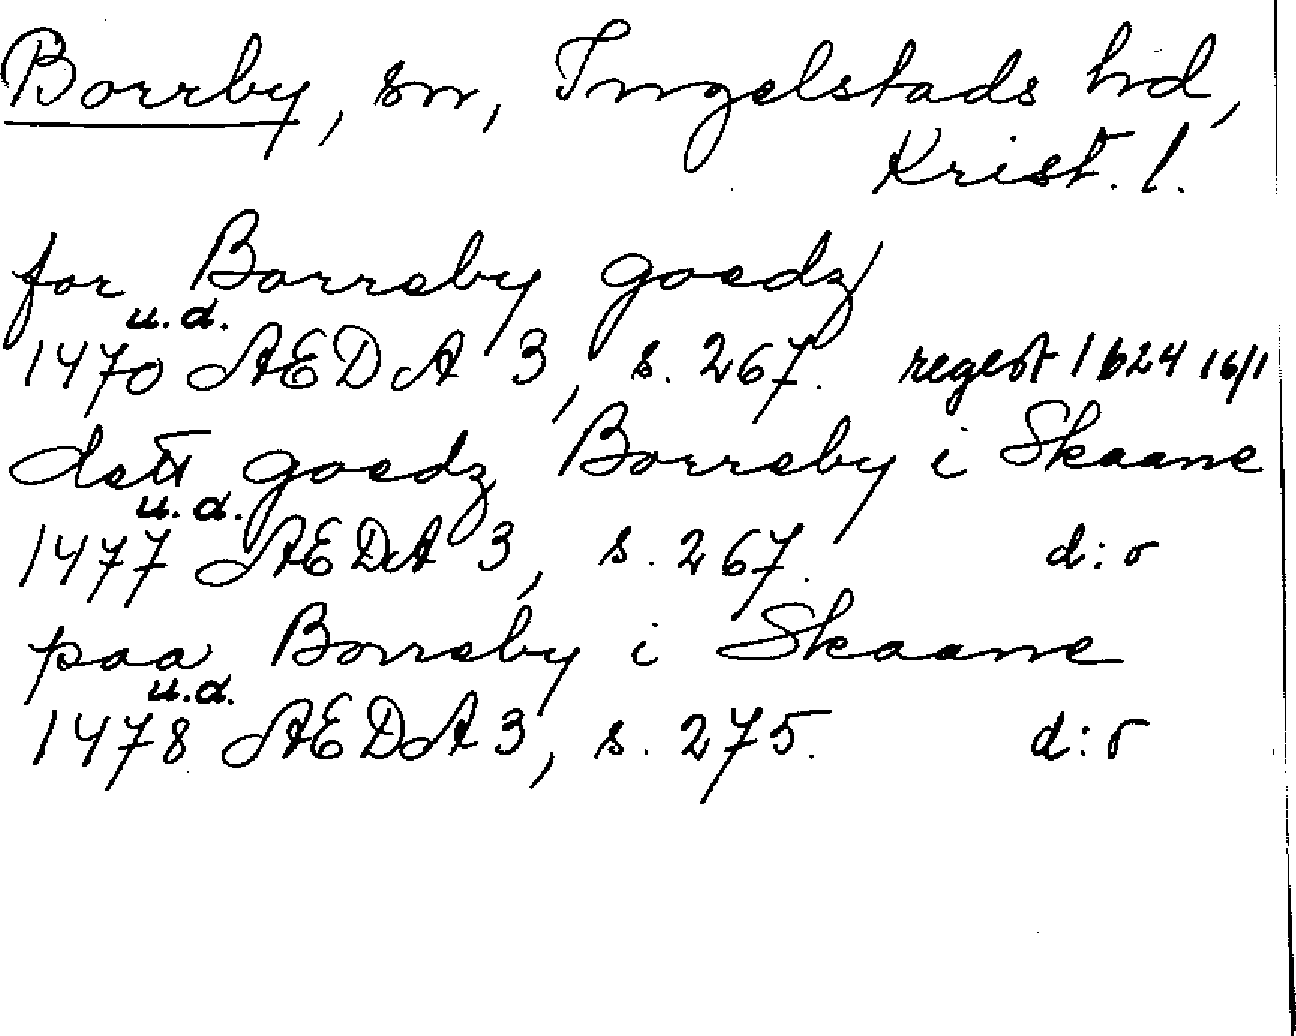 Borrby, sn, Ingelstads hd,
Krist. l.
for Borreby goedz
u.d.
1470 AEDA 3, s. 267. regest 1624 16/1
dett goedz Borreby i Skaane
u.d.
1477 AEDA 3, s. 267. d:o
paa Borreby i Skaane
u.d.
1478 AEDA 3, s. 275. d:o